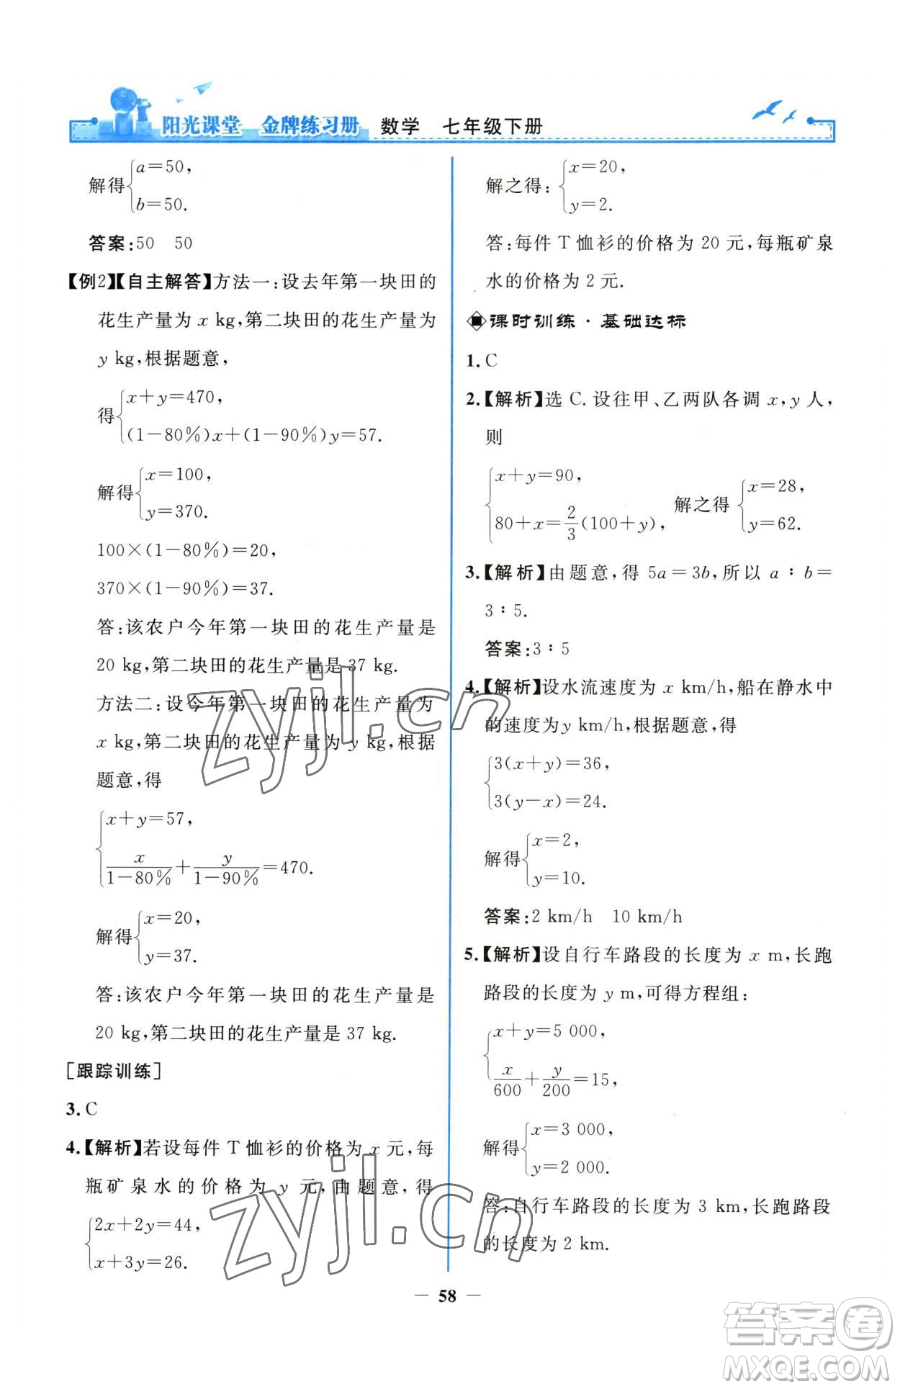 阳光课堂 金牌练习册 数学 七年级下册
解得{a=50,
b=50.
答案:50 50
【例2】【自主解答】方法一:设去年第一块田的
花生产量为 x kg,第二块田的花生产量为
y kg,根据题意,
得{x+y=470,
(1-80%)x+(1-90%)y=57.
解得{x=100,
y=370.
100×(1-80%)=20,
370×(1-90%)=37.
答:该农户今年第一块田的花生产量是
20 kg,第二块田的花生产量是 37 kg.
方法二:设今年第一块田的花生产量为
x kg,第二块田的花生产量为 y kg,根据
题意,得
{x+y=57,
x/(1-80%)+y/(1-90%)=470.
解得{x=20,
y=37.
答:该农户今年第一块田的花生产量是
20 kg,第二块田的花生产量是 37 kg.
[跟踪训练]
3.C
4.【解析】若设每件 T 恤衫的价格为 x 元,每
瓶矿泉水的价格为 y 元,由题意,得
{2x+2y=44,
x+3y=26.
解之得:{x=20,
y=2.
答:每件 T 恤衫的价格为 20 元,每瓶矿泉
水的价格为 2 元.
课时训练·基础达标
1.C
2.【解析】选 C.设往甲、乙两队各调 x,y 人,
则
{x+y=90,
80+x=2/3(100+y), 解之得{x=28,
y=62.
3.【解析】由题意,得 5a=3b,所以 a∶b=
3∶5.
答案:3∶5
4.【解析】设水流速度为 x km/h,船在静水中
的速度为 y km/h,根据题意,得
{3(x+y)=36,
3(y-x)=24.
解得{x=2,
y=10.
答案:2 km/h 10 km/h
5.【解析】设自行车路段的长度为 x m,长跑
路段的长度为 y m,可得方程组:
{x+y=5 000,
x/600+y/200=15,
解得{x=3 000,
y=2 000.
答:自行车路段的长度为 3 km,长跑路段
的长度为 2 km.
58
zyjl.cn
zyjl.cn
答案圈
MXQE.COM